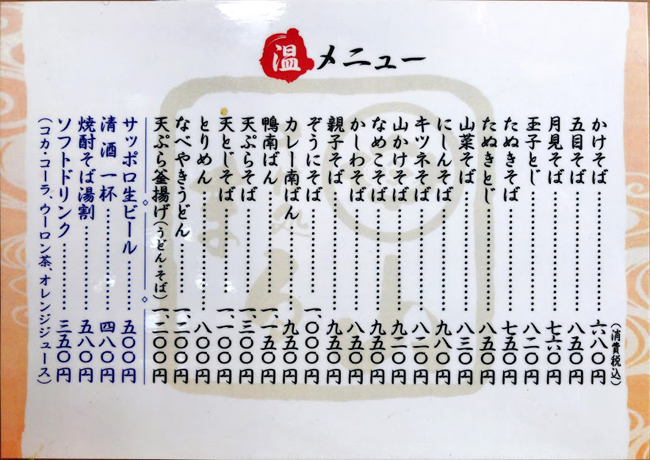 温メニュー
(消費税込)
かけそば…………六八〇円
五目そば…………八五〇円
月見そば…………七六〇円
玉子とじ…………八二〇円
たぬきそば…………七五〇円
たぬきとじ…………八五〇円
山菜そば…………八三〇円
にしんそば…………九八〇円
キツネそば…………八二〇円
山かけそば…………九二〇円
なめこそば…………九五〇円
かしわそば…………八五〇円
親子そば…………九五〇円
ぞうにそば…………一、〇〇〇円
カレー南ばん…………九五〇円
鴨南ばん…………一、一五〇円
天ぷらそば…………一、三〇〇円
天とじそば…………一、一〇〇円
とりめん…………八〇〇円
なべやきうどん…………一、二〇〇円
天ぷら釜揚げ(うどん・そば)一、二〇〇円
サッポロ生ビール…………五〇〇円
清酒 一杯…………四八〇円
焼酎そば湯割…………五八〇円
ソフトドリンク…………三五〇円
(コカ・コーラ、ウーロン茶、オレンジジュース)